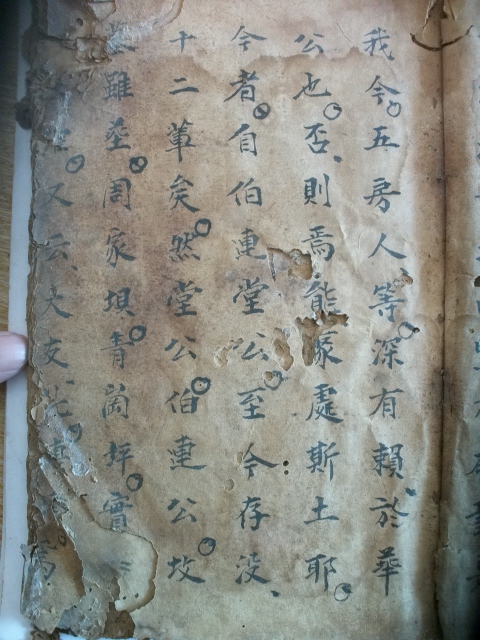 我今五房人等深有賴於華
公也否則焉能冢處斯土耶
今者自伯連堂公至今存没
十二葉矣然堂公伯連公坟
雖茔周家坝青岗坪實
又云大支